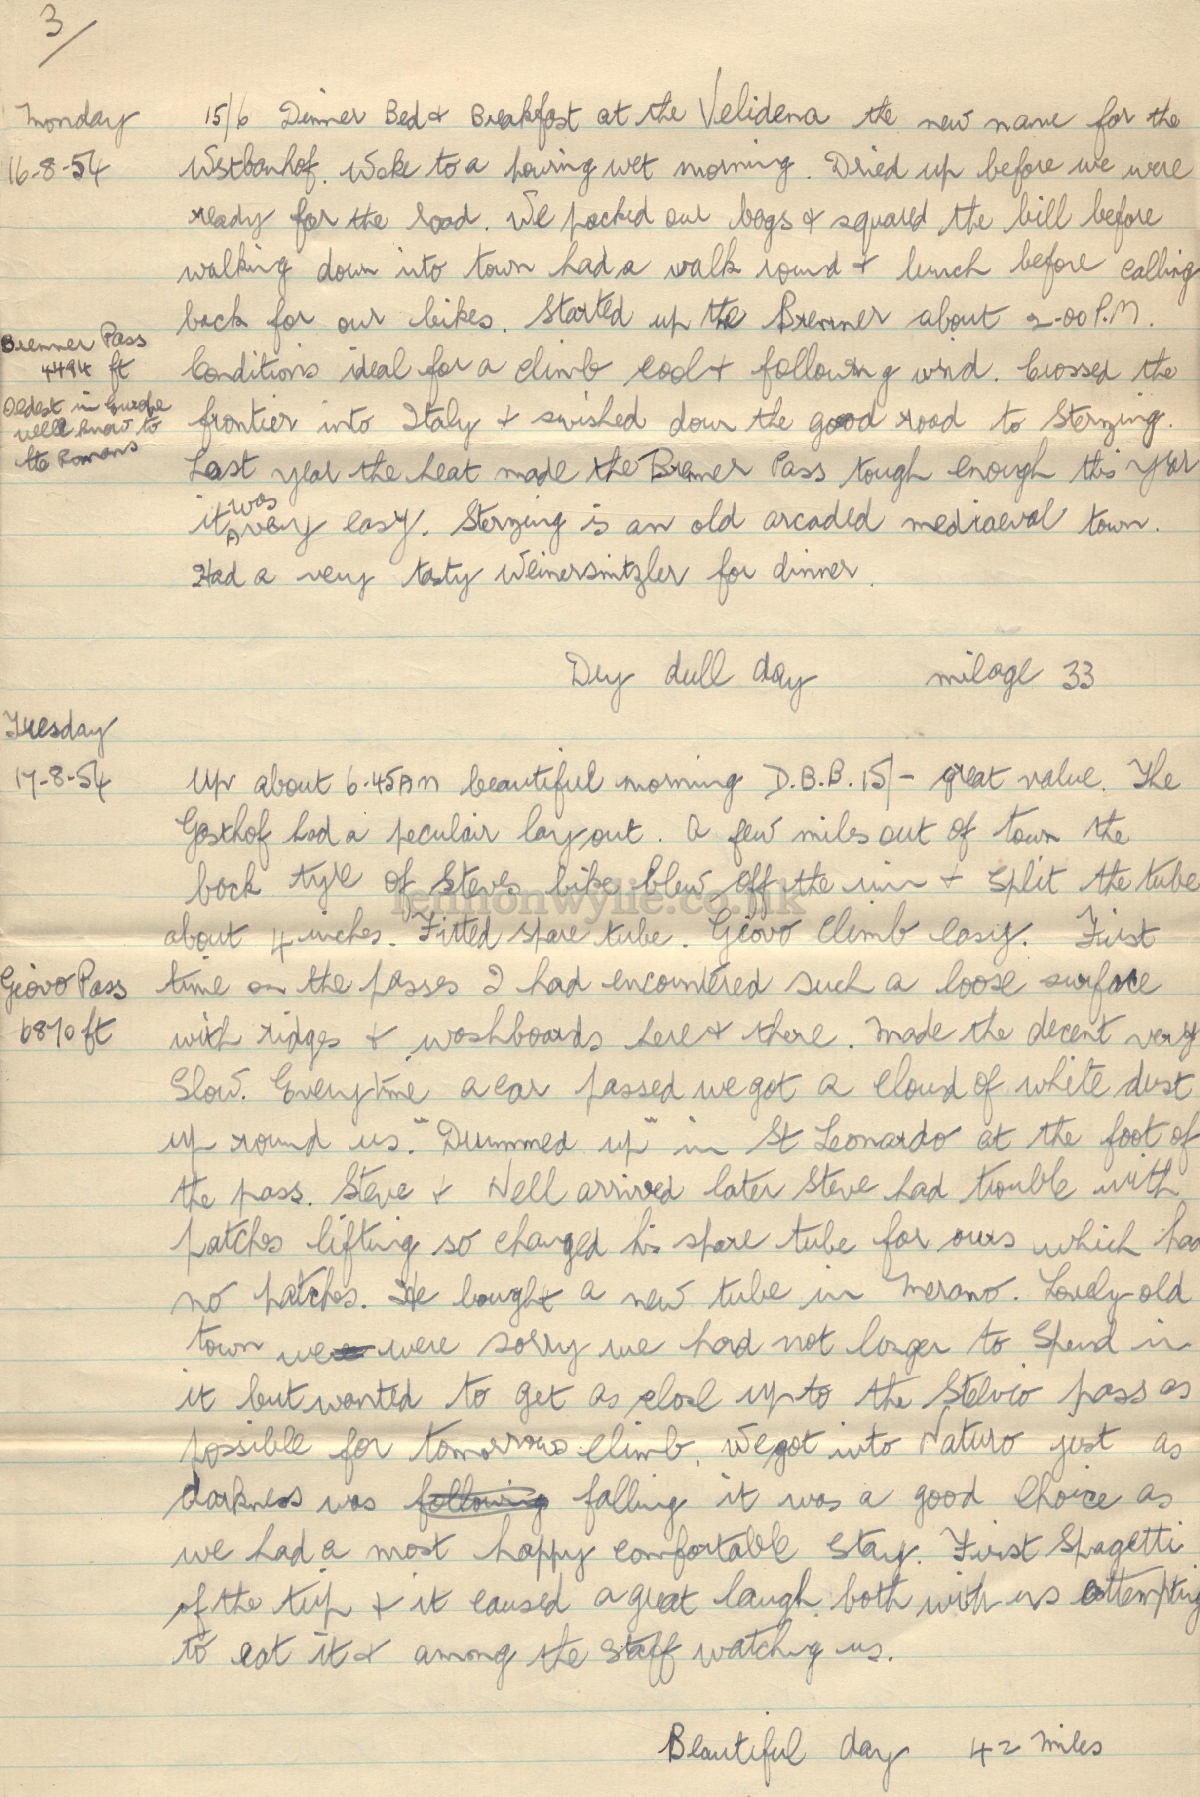 3/
Monday 15/6 Dinner Bed & Breakfast at the Velidena the new name for the
16-8-54 Westbanhof. Woke to a pouring wet morning. Dried up before we were
ready for the road. We packed our bags & squared the bill before
walking down into town had a walk round & lunch before calling
back for our bikes. Started up the Brenner about 2-00 P.M.
Brenner Pass
4494 ft
Oldest in Europe
well know to
the Romans
Conditions ideal for a climb cool & following wind. Crossed the
frontier into Italy & swished down the good road to Sterzing.
Last year the heat made the Brenner Pass tough enough this year
it was very easy. Sterzing is an old arcaded mediaeval town.
Had a very tasty Weinersnitzler for dinner.
Dry dull day milage 33
Tuesday
17-8-54 Up about 6.45 AM beautiful morning D.B.B. 15/- great value. The
Gasthof had a peculair lay out. A few miles out of town the
back tyre of Steves bike blew off the rim & split the tube
lennonwylie.co.uk
about 4 inches. Fitted spare tube. Giovo climb easy. First
Giovo Pass
6870 ft
time on the passes I had encountered such a loose surface
with ridges & washboards here & there. Made the decent very
slow. Everytime a car passed we got a cloud of white dust
up round us. "Drummed up" in St Leonardo at the foot of
the pass. Steve & Nell arrived later Steve had trouble with
patches lifting so changed his spare tube for ours which had
no patches. He bought a new tube in Merano. Lovely old
town we were sorry we had not longer to spend in
it but wanted to get as close up to the Stelvio pass as
possible for tomorrows climb. We got into Naturo just as
darkness was following falling it was a good choice as
we had a most happy comfortable stay. First Spagetti
of the trip & it caused a great laugh both with us attempting
to eat it & among the staff watching us.
Beautiful day 42 miles